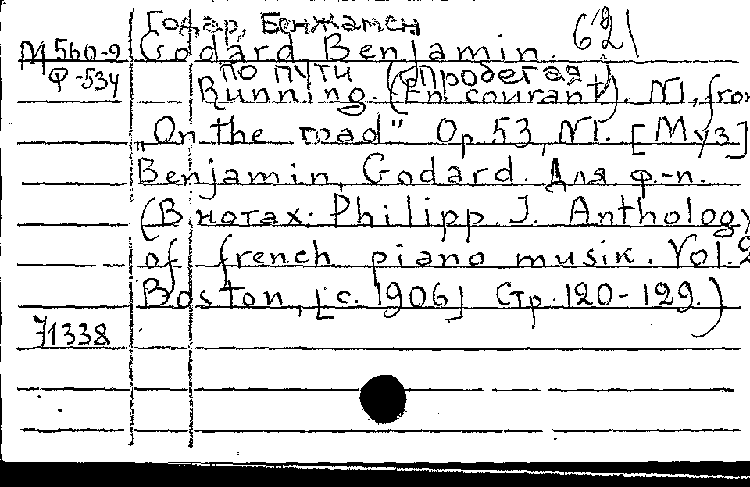 Годар, Бенжамен
621
М 560-9 Godard Benjamin.
Ф-534 по пути (Пробегая)
Running. (En courant). N1, from
„On the road" Op. 53, N1. [Муз.]
Benjamin, Godard. Для ф.-п.
(В нотах: Philipp J. Anthology
of french piano musik. Vol. 2
Boston, [c. 1906] Стр. 120-129.)
71338